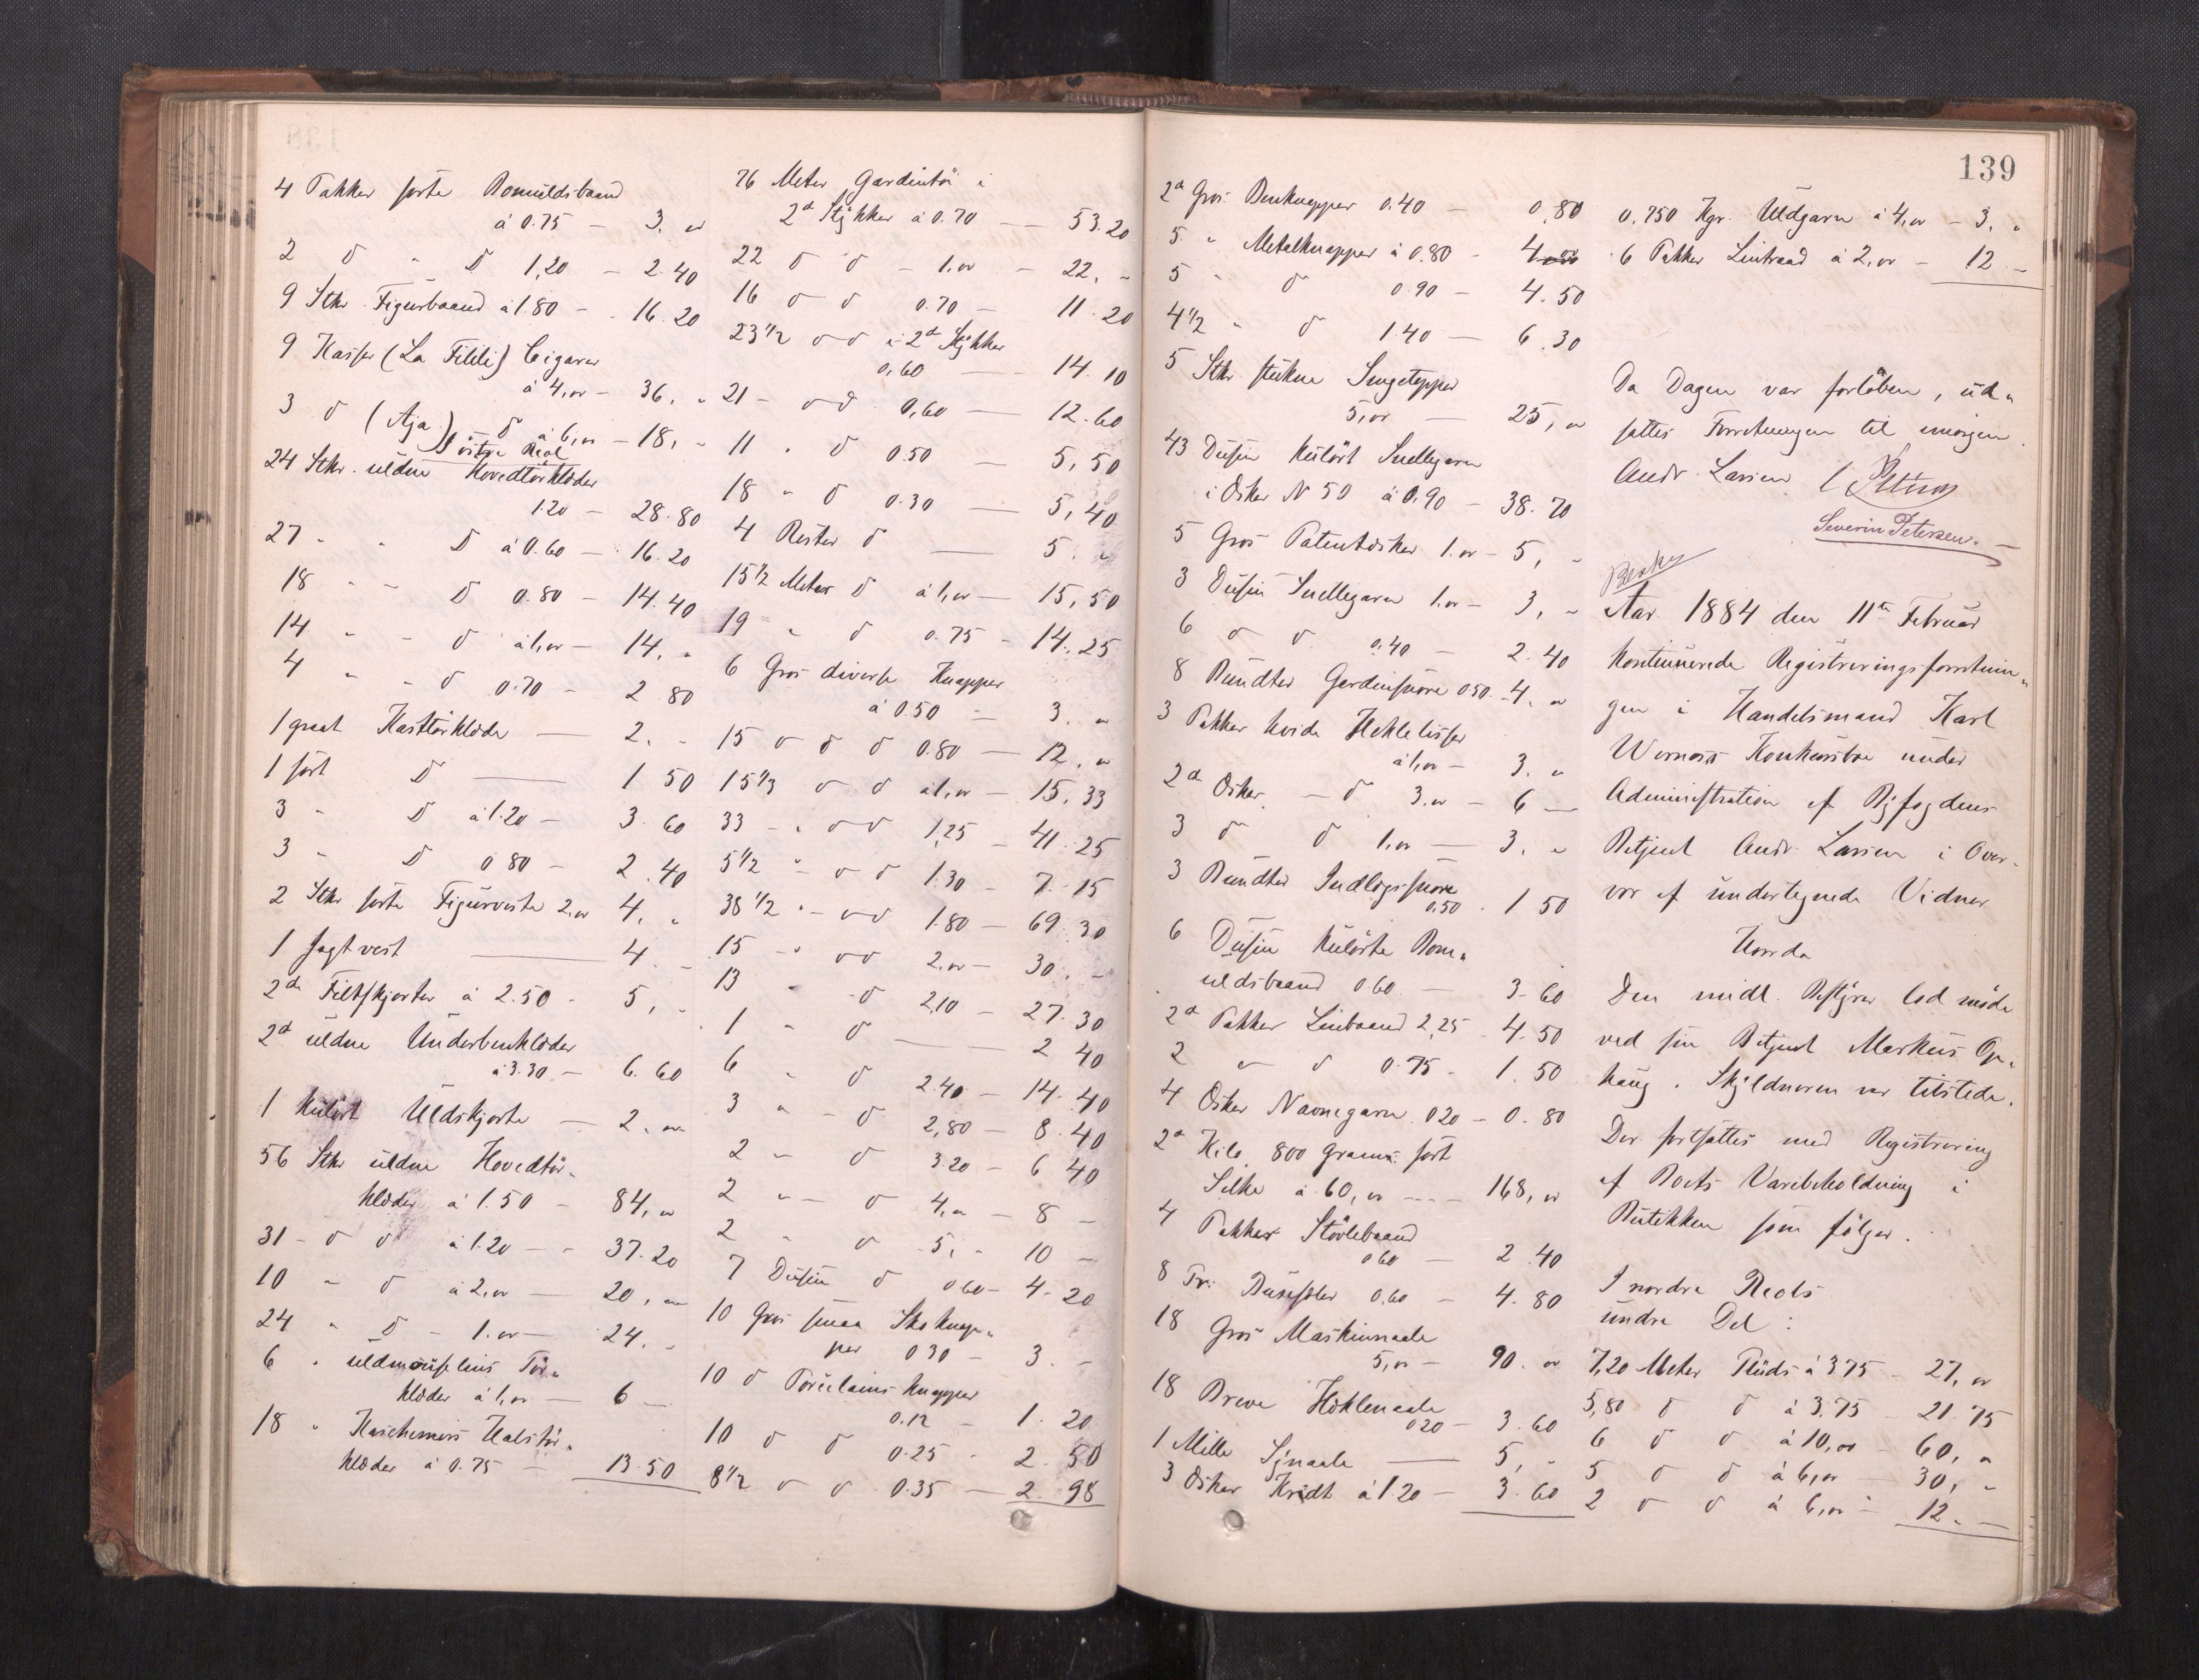 4 Pakker sorte Bomuldsbaand
à 0.75 — 3. "
2 d " d 1,20 — 2.40
9 Stkr. Figurbaand à 1.80 — 16.20
9 Kasser (La Fililie) Cigarer
à 4,00 — 36, "
3 d (Aja) — d à 6,00 — 18, "
I östre Reol
24 Stkr. uldne Hovedtörklæder
1.20 — 28.80
27 " " d à 0.60 — 16.20
18 " " d 0.80 — 14.40
14 " " d à 1,00 — 14, "
4 " " d 0.70 — 2 80
1 graat Kasttörklæde — 2. "
1 sort d — 1 50
3 " d à 1.20 — 3.60
3 " d 0 80 — 2.40
2 Stkr sorte Figurveste 2,00 4, "
1 Jagtvest — 4 —
2de Filtskjorter à 2.50 — 5, "
2d uldne Underbenklæder
à 3.30 — 6.60
1 kulört Uldskjorte — 2. "
56 Stkr uldne Hovedtör-
klæder à 1.50 — 84, "
31 - d d à 1.20 — 37.20
10 " d à 2,00 — 20, "
24 " d - 1.00 — 24. "
6 " uldmouselins Tör-
klæder à 1,00 — 6 —
18 " Kaschemirs Halstör-
klæder à 0.75 — 13.50
76 Meter Gardintöi i
2d Stykker à 0.70 — 53.20
22 d d - 1.00 — 22. "
16 d d 0.70 — 11.20
23 1/2 d d i 2d Stykker
0,60 — 14.10
21 - d d 0,60 — 12.60
11 " d 0.50 — 5,50
18 " d 0.30 — 5,40
4 Rester d — 5. "
15 1/2 Meter d à 1,00 — 15,50
19 " d 0.75 — 14.25
6 Gros diverse Knapper
à 0.50 — 3. "
15 d d d 0.80 — 12. "
15 1/3 d d à 1,00 — 15,33
33 - " d d 1,25 — 41.25
5 1/2 " d d 1.30 — 7.15
38 1/2 " - d d 1.80 — 69.30
15 - " d d 2.00 — 30. "
13 " d 2,10 — 27.30
1 " d — 2 40
6 " d 2.40 — 14.40
3 " - d 2,80 — 8.40
2 " d 3.20 — 6 40
2 " - d 4," — 8 —
2 " d 5, " 10 —
7 Dusin d 0 60 — 4.20
10 Gros smaa Skoknap-
per 0 30 — 3. —
10 d Porcelains knapper
0.12 — 1.20
10 d d 0.25 — 2.50
8 1/2 d d 0.35 — 2.98
139
2d Gros Benknapper 0.40 — 0.80
5 " Metalknapper à 0.80 — 4
5 " d 0.90 — 4.50
4 1/2 " d 1.40 — 6.30
5 Stkr. stukne Sengetepper
5,00 — 25, "
43 Dusin kulört Snellegarn
i Æsker N 50 à 0.90 — 38.70
5 Gros Patentæsker 1.00 — 5, "
3 Dusin Snellegarn 1.00 — 3, "
6 d d 0.40 — 2.40
8 Bundter Gardinsnöre 0.50 — 4. "
3 Pakker hvide Heklelisser
à 1,00 — 3. "
2d Æsker — d 3.00 — 6 —
3 d d 1,00 — 3. "
3 Bundter Indlægssnöre
0,50 . 1 50
6 Dusin kulörte Bom-
uldsbaand 0.60 — 3.60
2d Pakker Linbaand 2,25 — 4.50
2 " d 0.75 — 1.50
4 Æsker Navnegarn 0 20 — 0.80
2d Kilo 800 Gram sort
Silke à 60,00 — 168, "
4 Pakker Stövlebaand
0 60 — 2.40
8 Pr. 0.60 — 4.80
18 Gros Maskinnaale
5,00 — 90. "
18 Breve Heklenaale
0 20 — 3.60
1 Mille Synaale — 5, "
3 Æsker Kridt à 1 20 — 3.60
0,750 Kgr. Uldgarn à 4,00 — 3, "
6 Pakker Lintraad à 2,00 — 12. —
Da Dagen var forlöben, ud-
sattes Forretningen til imorgen.
Andr. Larsen
Severin Petersen.
Aar 1884 den 11te Februar
kontinuerede Registreringsforretnin-
gen i Handelsmand Karl
Werners Konkursbo under
Administration af Byfogdens
Betjent Andr. Larsen i Over-
vær af undertegnede Vidner
Hvorda
Den midl. Bestyrer lod möde
ved sin Betjent Markus Op-
haug. Skyldneren var tilstede.
Der fortsattes med Registrering
af Boets Varebeholdning i
Butikken som fölger.
I nordre Reols
undre Del:
7,20 Meter Pluds à 3 75 — 27, "
5,80 d d à 3.75 — 21.75
6 d d à 10,00 — 60, "
5 d d à 6,00 — 30, "
2 d d à 6,00 — 12. —